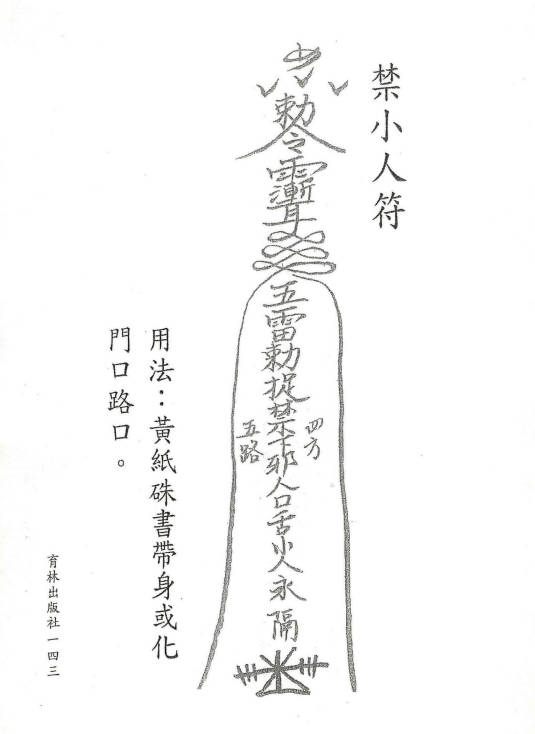 禁小人符
勅令
五雷勅捉禁下邪人口舌小人永隔
四方
五路
用法：黃紙硃書帶身或化
門口路口。
育林出版社一四三